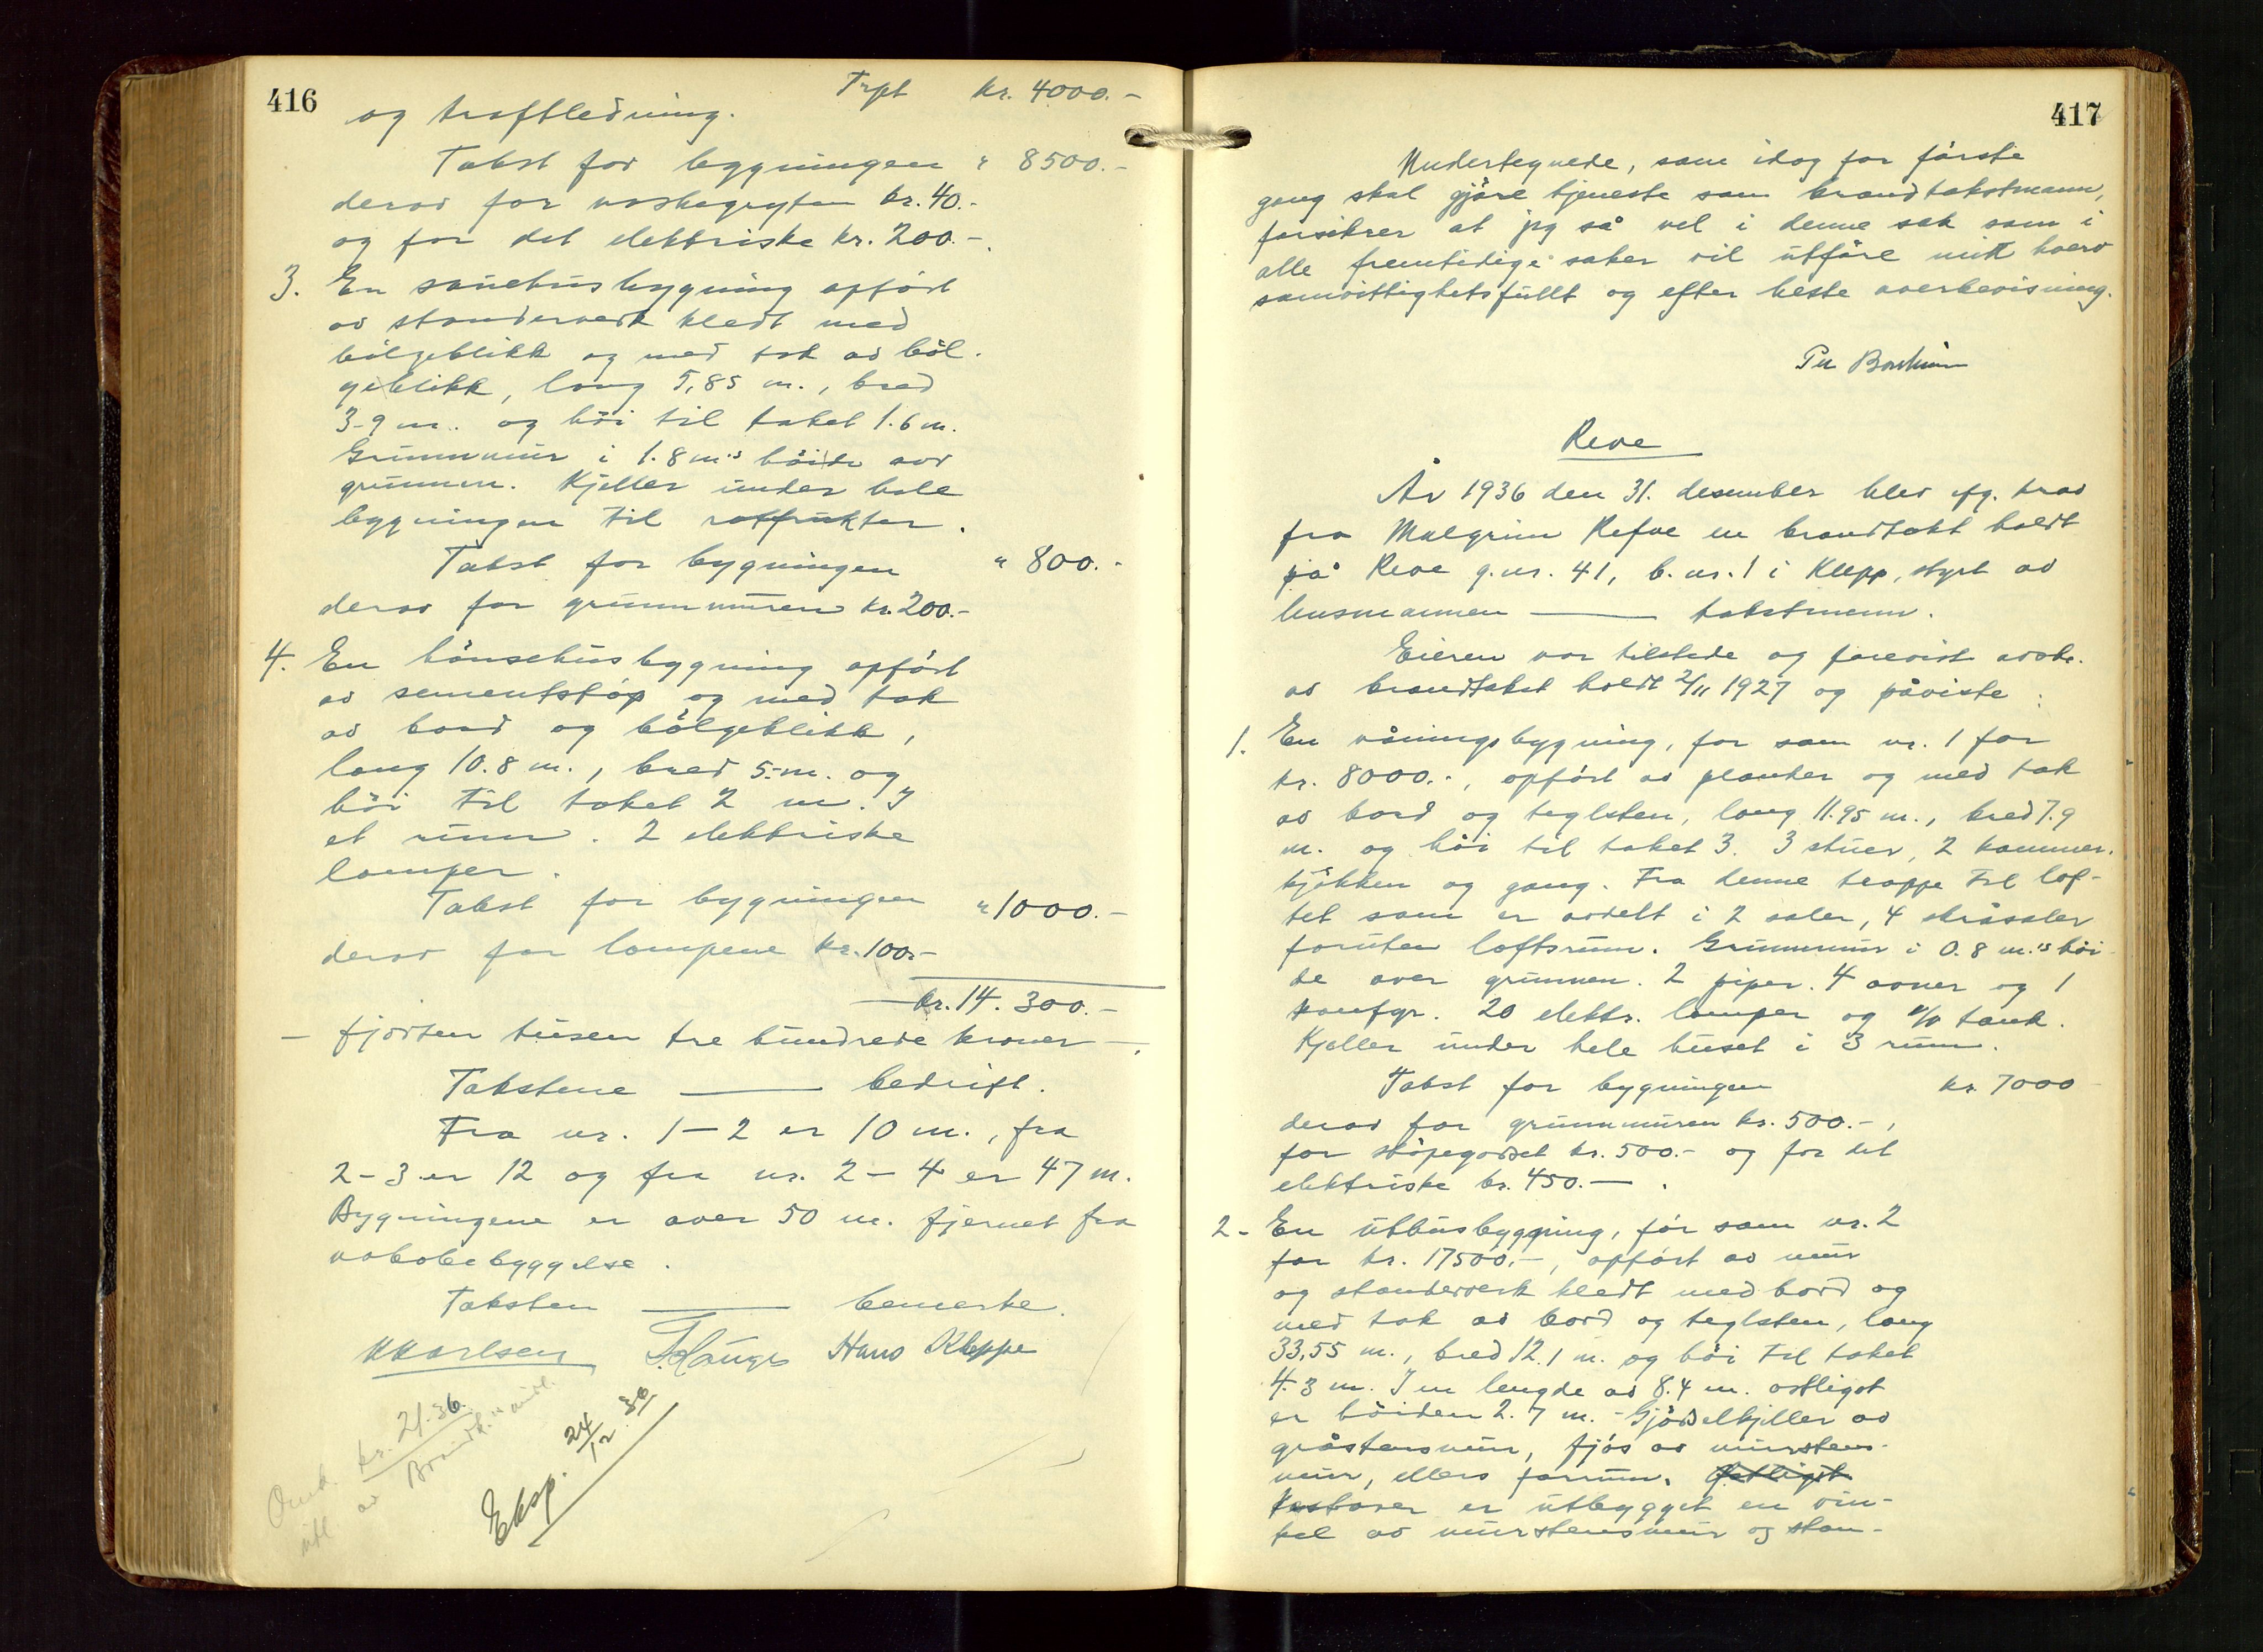 416
Trpt kr. 4000.-
og kraftledning.
Takst for bygningen " 8500.-
derav for vaskegryten kr. 40.-
og for det elektriske kr. 200.-.
3. En sauehusbygning opført
av standerverk kledt med
bølgeblikk og med tak av bøl-
geblikk, lang 5,85 m., bred
3-9 m. og høi til taket 1.6 m.
Grunnmur i 1.8 m's høide over
grunnen. Kjeller under hele
bygningen til rotfrukter.
Takst for bygningen " 800.-
derav for grunnmuren kr. 200.-
4. En hønsehusbygning opført
av sementstøp og med tak
av bord og bølgeblikk,
lang 10.8 m., bred 5.-m. og
høi til taket 2 m. I
et rum. 2 elektriske
lamper.
Takst for bygningen " 1000.-
derav for lampene kr. 100.-
kr. 14.300.-
- fjorten tusen tre hundrede kroner -.
Takstene —— bedrift.
Fra nr. 1-2 er 10 m., fra
2-3 er 12 og fra nr. 2-4 er 47 m.
Bygningene er over 50 m. fjernet fra
nabobebyggelse.
Taksten —— bemerke.
KKarlsen Hauge Hans Kleppe
kr. 21.36.
av Brandk.
Eksp. 24/12 36
417
Undertegnede, som idag for første
gang skal gjøre tjeneste som brandtakstmann,
forsikrer at jeg så vel i denne sak som i
alle fremtidige saker vil utføre mitt hverv
samvittighetsfullt og efter beste overbevisning.
Reve
År 1936 den 31. desember blev efg. krav
fra Malgrim Refve en brandtakst holdt
på Reve g.nr. 41, b.nr. 1 i Klepp, styrt av
lensmannen —— takstmenn.
Eieren var tilstede og forevist avskr.
av brandtakst holdt 2/11 1927 og påviste:
1. En våningsbygning, før som nr. 1 for
kr. 8000.-, opført av planker og med tak
av bord og teglsten, lang 11.95 m., bred 7.9
m. og høi til taket 3. 3 stuer, 2 kammer.
kjøkken og gang. Fra denne trappe til lof-
tet som er avdelt i 2 saler, 4 skråsaler
foruten loftsrum. Grunnmur i 0.8 m.'s høi-
de over grunnen. 2 piper. 4 ovner og 1
komfyr. 20 elektr. lamper og tank.
Kjeller under hele huset i 3 rum.
Takst for bygningen kr. 7000
derav for grunnmuren kr. 500.-,
for støpegodset kr. 500.- og for det
elektriske kr. 450.-.
2- En uthusbygging, før som nr. 2
for kr. 17500.-, opført av mur
og standerverk kledt med bord og
med tak av bord og teglsten, lang
33,55 m., bred 12.1 m. og høi til taket
4.3 m. I en lengde av 8.4 m. østligst
er høiden 2.7 m. - Gjødselkjeller av
gråstensmur, fjøs av murstens-
mur, ellers forrum. Østligst
Vestover er utbygget en vin-
kel av murstensmur og stan-